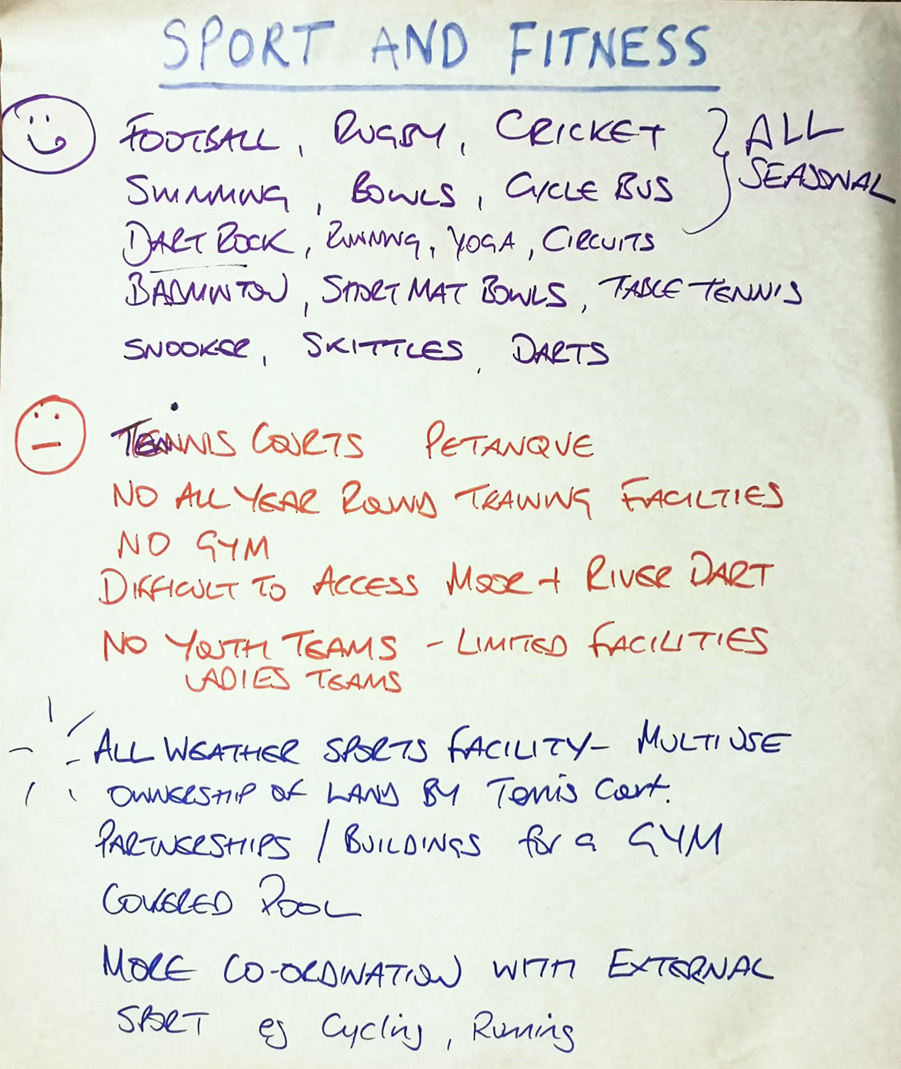 SPORT AND FITNESS
FOOTBALL, RUGBY, CRICKET } ALL
SWIMMING, BOWLS, CYCLE BUS SEASONAL
DART ROCK, RUNNING, YOGA, CIRCUITS
BADMINTON, SHORT MAT BOWLS, TABLE TENNIS
SNOOKER, SKITTLES, DARTS
TENNIS COURTS PETANQUE
NO ALL YEAR ROUND TRAINING FACILTIES
NO GYM
DIFFICULT TO ACCESS MOOR + RIVER DART
NO YOUTH TEAMS - LIMITED FACILITIES
LADIES TEAMS
ALL WEATHER SPORTS FACILITY - MULTI USE
OWNERSHIP OF LAND BY Tennis Court.
PARTNERSHIPS / BUILDINGS for a GYM
COVERED POOL
MORE CO-ORDINATION WITH EXTERNAL
SPORT eg Cycling, Running